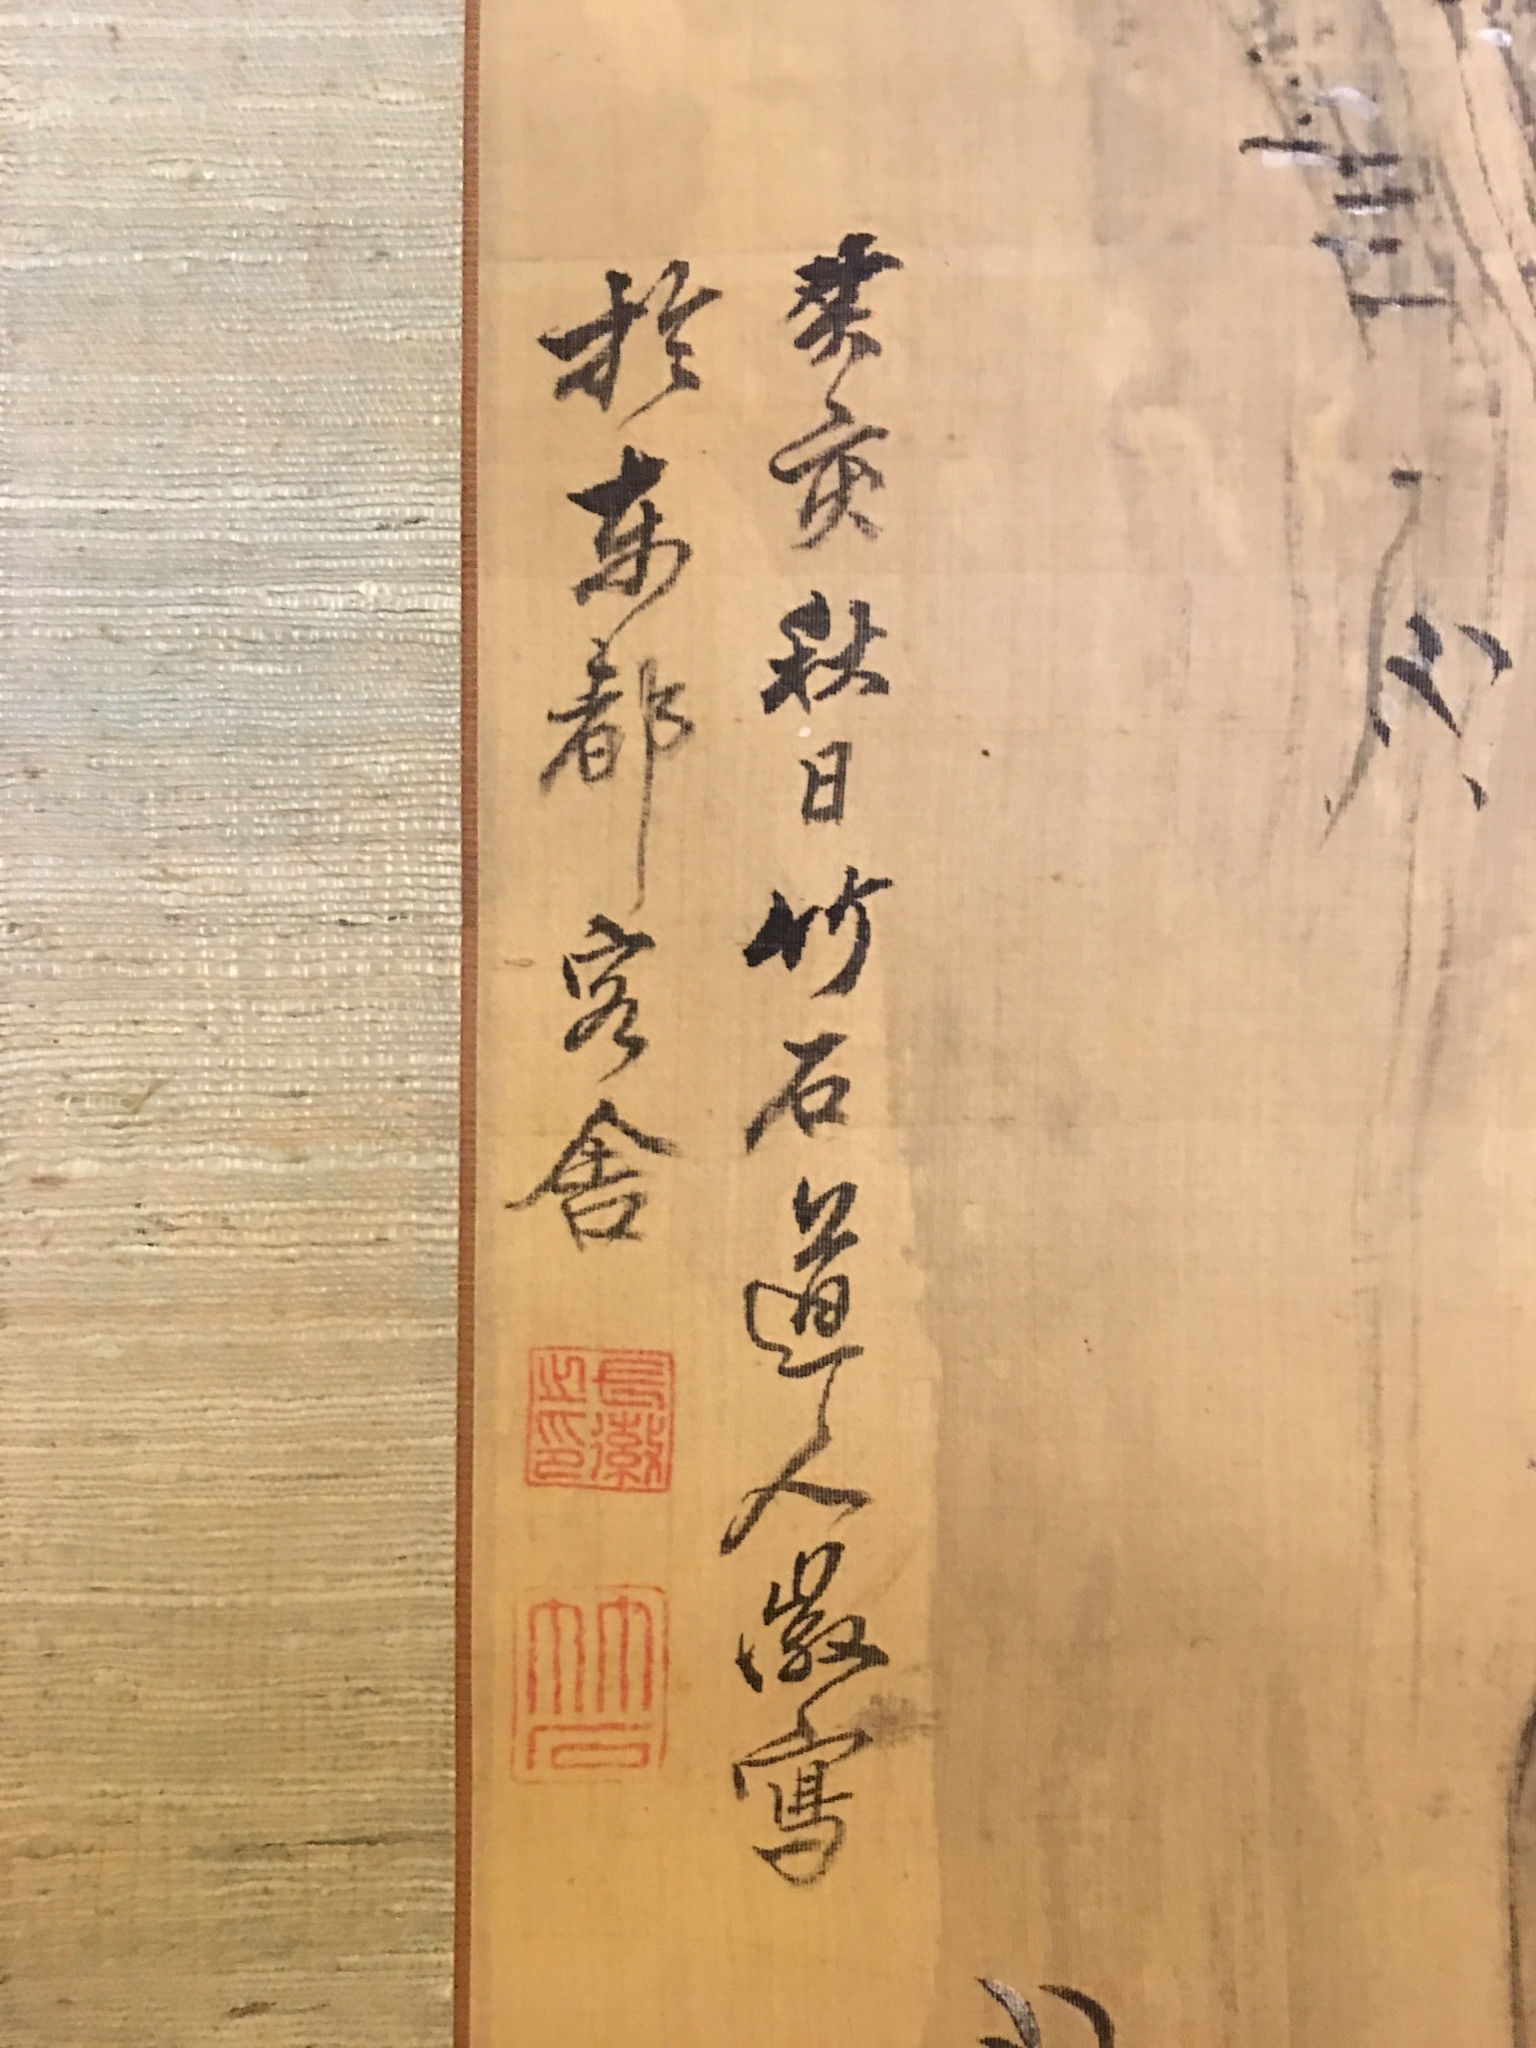 癸亥秋日竹石道人徽寫
於東都客舍
長徽之印
竹石